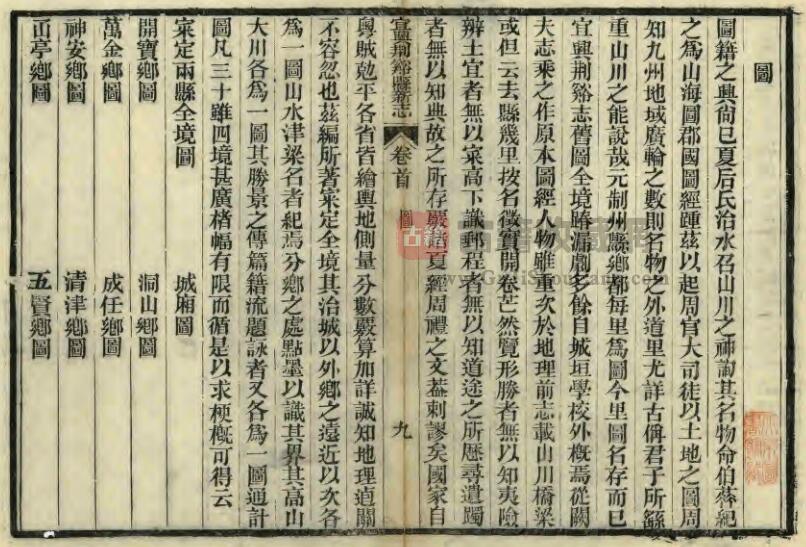 圖
圖籍之興尙已夏后氏治水召山川之神詢其名物命伯益紀
之為山海圖郡國圖經踵茲以起周官大司徒以土地之圖周
知九州地域廣輪之數則名物之外道里尤詳古偁君子所繇
重山川之能說哉元制州縣鄉都每里為圖今里圖名存而已
宜興荆谿志舊圖全境踳漏劇多餘自城垣學校外槪焉從闕
夫志乘之作原本圖經人物雖重次於地理前志載山川橋梁
或但云去縣幾里按名徵實開卷芒然覽形勝者無以知夷險
辨土宜者無以寀高下識郵程者無以知道途之所歷尋遺躅
者無以知典故之所存嚴諸夏經周禮之文葢刺謬矣國家自
宜興荆谿縣新志 卷首 圖 九
粵賊兝平各省皆繪輿地側量分數覈算加詳誠知地理逌關
不容忽也茲編所著寀定全境其治城以外鄉之遠近以次各
為一圖山水津梁名者紀焉分鄉之處點墨以識其界其高山
大川各為一圖其勝景之傳篇籍流題詠者又各為一圖通計
圖凡三十雖四境甚廣楮幅有限而循是以求梗槪可得云
寀定兩縣全境圖 城廂圖
開寶鄉圖 洞山鄉圖
萬金鄉圖 成任鄉圖
神安鄉圖 清津鄉圖
山亭鄉圖 五賢鄉圖
古籍
www.GujiShoucang.com